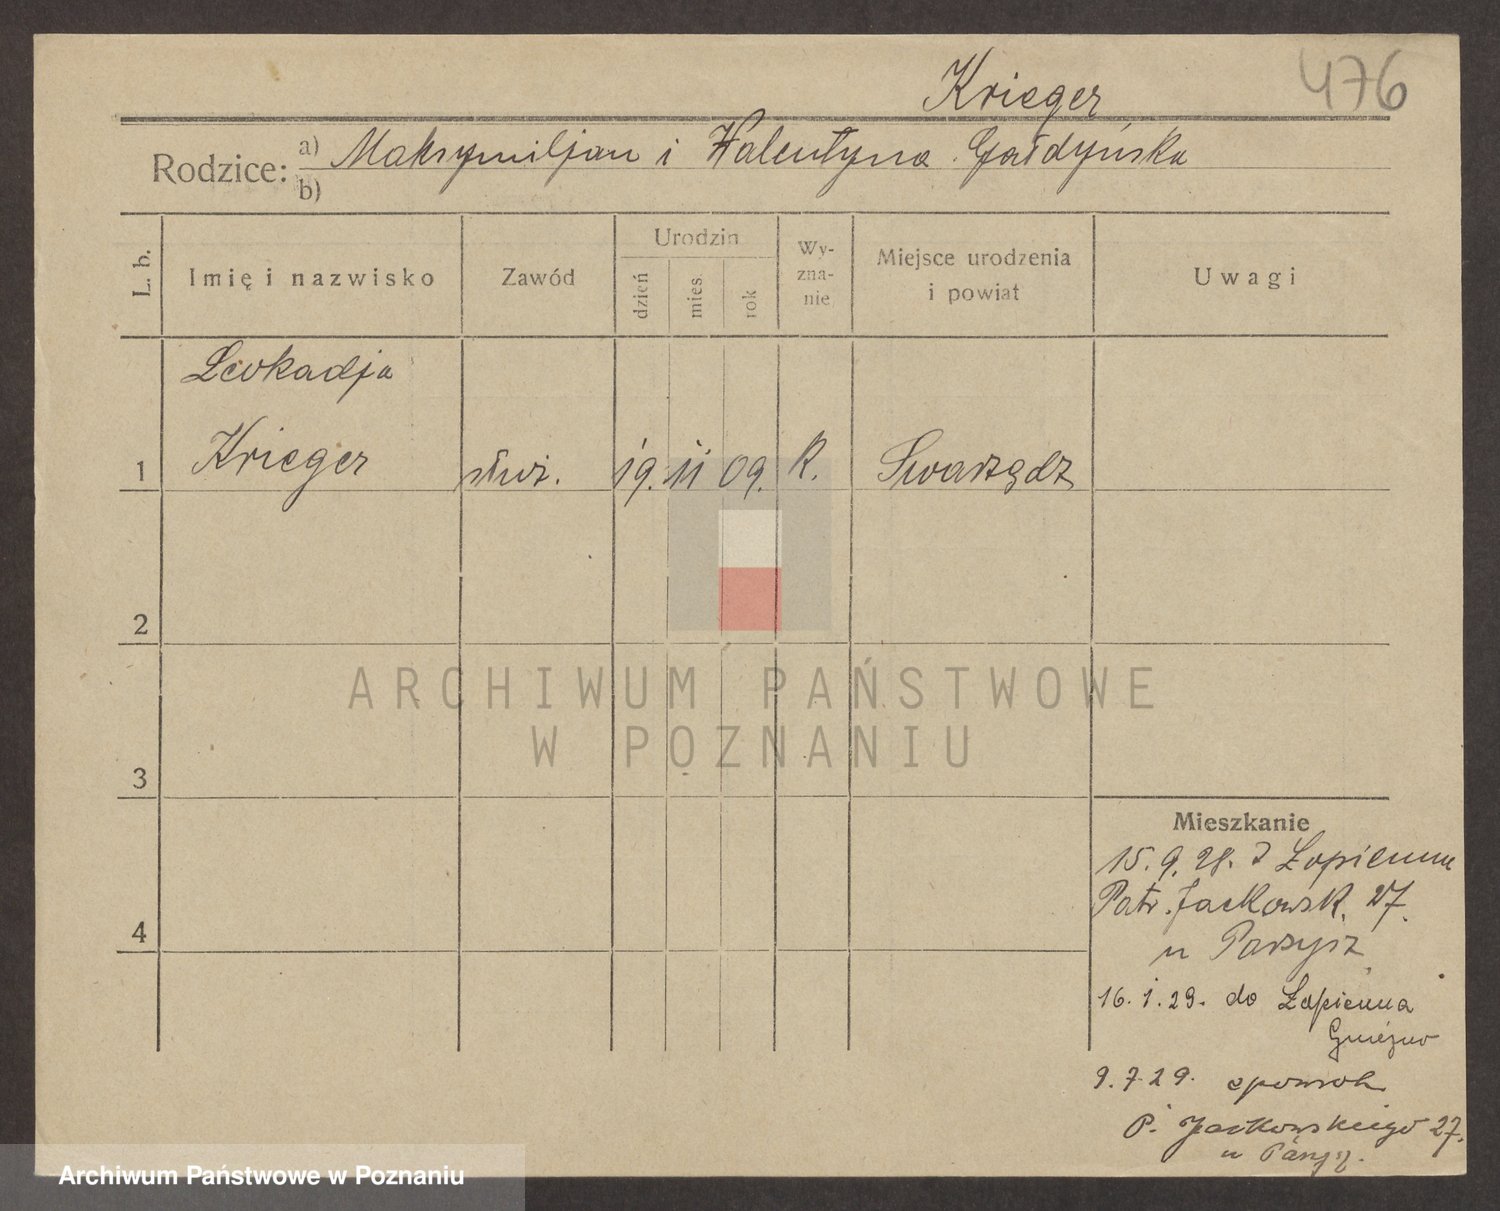 Krieger 476
Rodzice: a) Maksymiljan i Walentyna Gałdyńska
b)
L. b. Imię i nazwisko Zawód Urodzin dzień mies. rok Wy-zna-nie Miejsce urodzenia i powiat Uwagi
Leokadja
1 Krieger służ. 19. 11 09. R. Swarzędz
2
ARCHIWUM PAŃSTWOWE
W POZNANIU
3
Mieszkanie
15. 9. 28. z Łopienna
Patr. Jackowsk. 27.
4
u
16. 1. 29. do Łopienna
Gniezno
9. 7 29. spowrot
P. Jackowskiego 27.
u
Archiwum Państwowe w Poznaniu